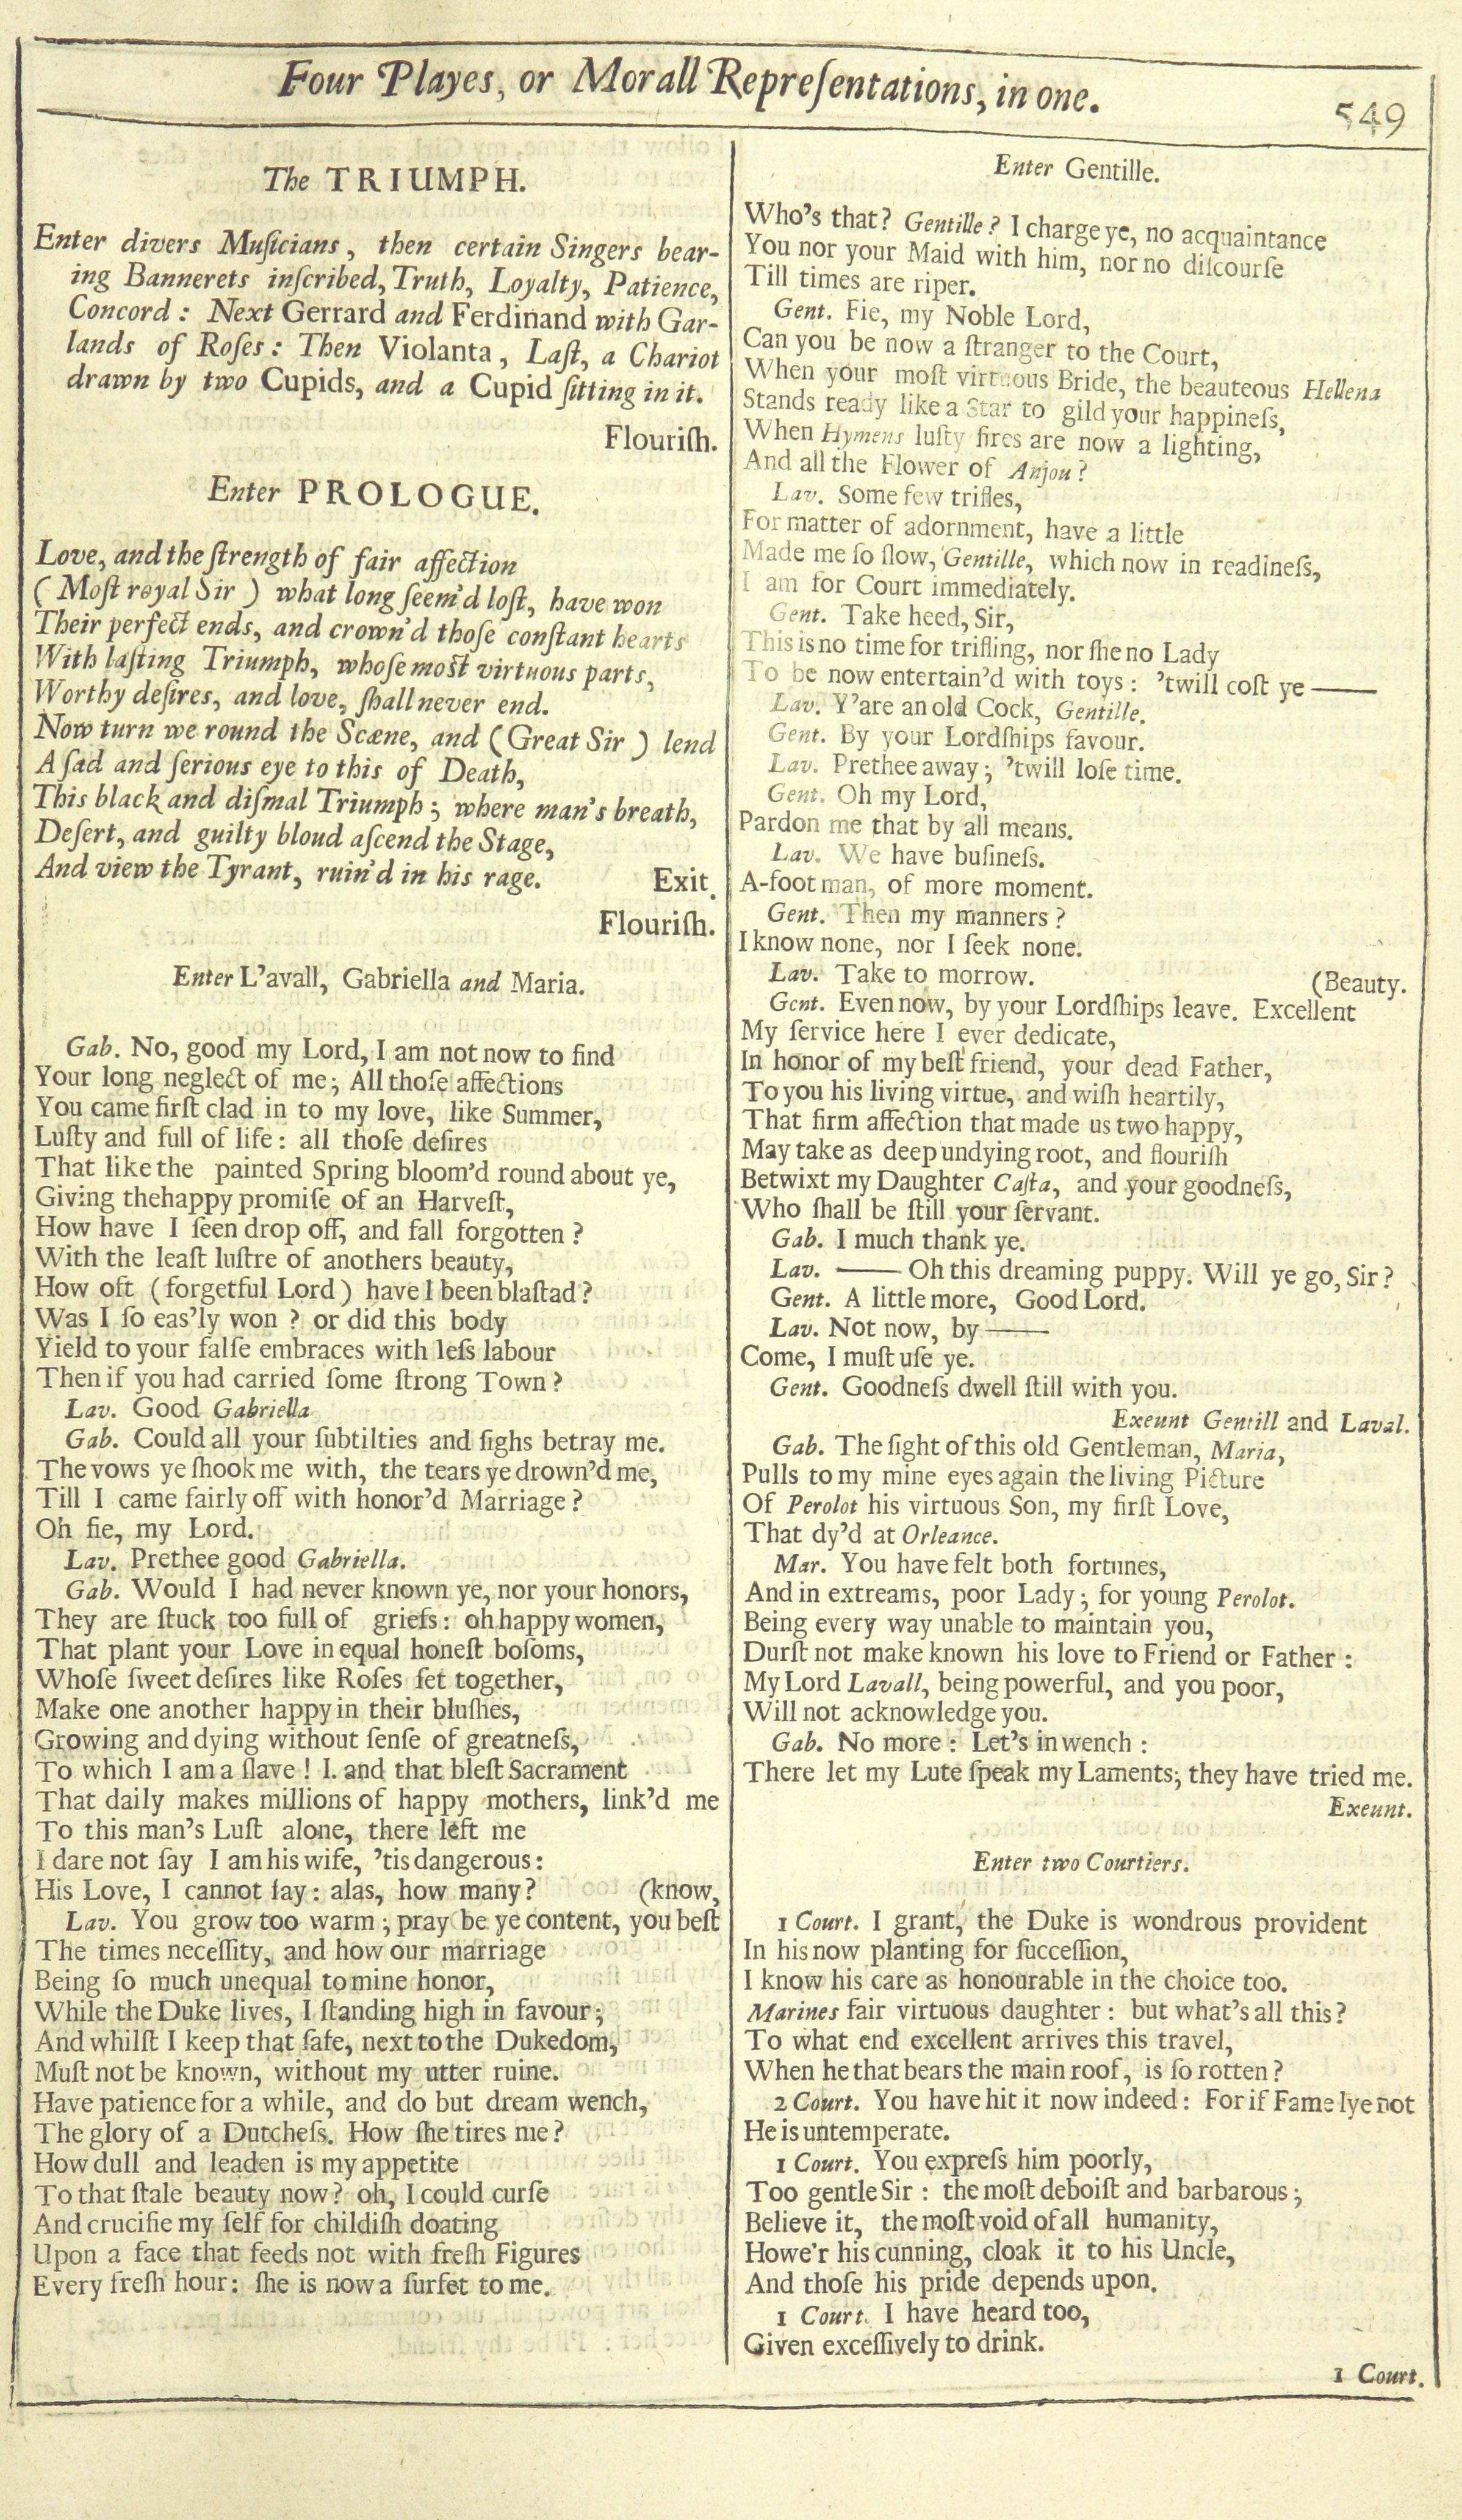 Four Playes, or Morall Repreſentations, in one.
549
The TRIUMPH.
Enter divers Muſicians, then certain Singers bear-
ing Bannerets inſcribed, Truth, Loyalty, Patience,
Concord: Next Gerrard and Ferdinand with Gar-
lands of Roſes: Then Violanta, Laſt, a Chariot
drawn by two Cupids, and a Cupid ſitting in it.
Flouriſh.
Enter PROLOGUE.
Love, and the ſtrength of fair affection
(Moſt royal Sir) what long ſeem'd loſt, have won
Their perfect ends, and crown'd thoſe conſtant hearts
With laſting Triumph, whoſe most virtuous parts,
Worthy deſires, and love, ſhall never end.
Now turn we round the Scæne, and (Great Sir) lend
A ſad and ſerious eye to this of Death,
This black and diſmal Triumph; where man's breath,
Deſert, and guilty bloud aſcend the Stage,
And view the Tyrant, ruin'd in his rage. Exit.
Flouriſh.
Enter L'avall, Gabriella and Maria.
Gab. No, good my Lord, I am not now to find
Your long neglect of me; All thoſe affections
You came firſt clad in to my love, like Summer,
Luſty and full of life: all thoſe deſires
That like the painted Spring bloom'd round about ye,
Giving thehappy promiſe of an Harveſt,
How have I ſeen drop off, and fall forgotten?
With the leaſt luſtre of anothers beauty,
How oft (forgetful Lord) have I been blaſtad?
Was I ſo eas'ly won? or did this body
Yield to your falſe embraces with leſs labour
Then if you had carried ſome ſtrong Town?
Lav. Good Gabriella
Gab. Could all your ſubtilties and ſighs betray me.
The vows ye ſhook me with, the tears ye drown'd me,
Till I came fairly off with honor'd Marriage?
Oh fie, my Lord.
Lav. Prethee good Gabriella.
Gab. Would I had never known ye, nor your honors,
They are ſtuck too full of griefs: oh happy women,
That plant your Love in equal honeſt boſoms,
Whoſe ſweet deſires like Roſes ſet together,
Make one another happy in their bluſhes,
Growing and dying without ſenſe of greatneſs,
To which I am a ſlave! I. and that bleſt Sacrament
That daily makes millions of happy mothers, link'd me
To this man's Luſt alone, there left me
I dare not ſay I am his wife, 'tis dangerous:
His Love, I cannot ſay: alas, how many? (know,
Lav. You grow too warm; pray be ye content, you beſt
The times neceſſity, and how our marriage
Being ſo much unequal to mine honor,
While the Duke lives, I ſtanding high in favour;
And whilſt I keep that ſafe, next to the Dukedom,
Muſt not be known, without my utter ruine.
Have patience for a while, and do but dream wench,
The glory of a Dutcheſs. How ſhe tires me?
How dull and leaden is my appetite
To that ſtale beauty now? oh, I could curſe
And crucifie my ſelf for childiſh doating
Upon a face that feeds not with freſh Figures
Every freſh hour: ſhe is now a ſurfet to me.
Enter Gentille.
Who's that? Gentille? I charge ye, no acquaintance
You nor your Maid with him, nor no diſcourſe
Till times are riper.
Gent. Fie, my Noble Lord,
Can you be now a ſtranger to the Court,
When your moſt virtuous Bride, the beauteous Hellena
Stands ready like a Star to gild your happineſs,
When Hymens luſty fires are now a lighting,
And all the Flower of Anjou?
Lav. Some few trifles,
For matter of adornment, have a little
Made me ſo ſlow, Gentille, which now in readineſs,
I am for Court immediately.
Gent. Take heed, Sir,
This is no time for trifling, nor ſhe no Lady
To be now entertain'd with toys: 'twill coſt ye——
Lav. Y'are an old Cock, Gentille.
Gent. By your Lordſhips favour.
Lav. Prethee away; 'twill loſe time.
Gent. Oh my Lord,
Pardon me that by all means.
Lav. We have buſineſs.
A-foot man, of more moment.
Gent. Then my manners?
I know none, nor I ſeek none.
Lav. Take to morrow. (Beauty.
Gent. Even now, by your Lordſhips leave. Excellent
My ſervice here I ever dedicate,
In honor of my beſt friend, your dead Father,
To you his living virtue, and wiſh heartily,
That firm affection that made us two happy,
May take as deep undying root, and flouriſh
Betwixt my Daughter Caſta, and your goodneſs,
Who ſhall be ſtill your ſervant.
Gab. I much thank ye.
Lav. —— Oh this dreaming puppy. Will ye go, Sir?
Gent. A little more, Good Lord.
Lav. Not now, by——
Come, I muſt uſe ye.
Gent. Goodneſs dwell ſtill with you.
Exeunt Gentill and Laval.
Gab. The ſight of this old Gentleman, Maria,
Pulls to my mine eyes again the living Picture
Of Perolot his virtuous Son, my firſt Love,
That dy'd at Orleance.
Mar. You have felt both fortunes,
And in extreams, poor Lady; for young Perolot.
Being every way unable to maintain you,
Durſt not make known his love to Friend or Father:
My Lord Lavall, being powerful, and you poor,
Will not acknowledge you.
Gab. No more: Let's in wench:
There let my Lute ſpeak my Laments; they have tried me.
Exeunt.
Enter two Courtiers.
1 Court. I grant, the Duke is wondrous provident
In his now planting for ſucceſſion,
I know his care as honourable in the choice too.
Marines fair virtuous daughter: but what's all this?
To what end excellent arrives this travel,
When he that bears the main roof, is ſo rotten?
2 Court. You have hit it now indeed: For if Fame lye not
He is untemperate.
1 Court. You expreſs him poorly,
Too gentle Sir: the moſt deboiſt and barbarous;
Believe it, the moſt void of all humanity,
Howe'r his cunning, cloak it to his Uncle,
And thoſe his pride depends upon.
1 Court. I have heard too,
Given exceſſively to drink.
1 Court.